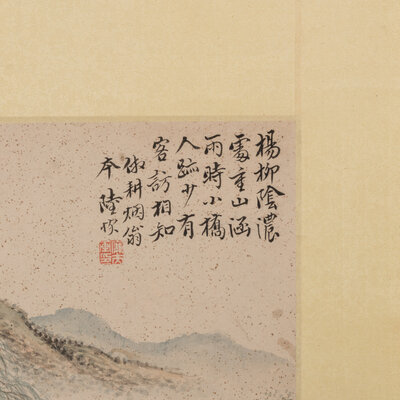 楊柳陰濃
處重山涵
雨時小橋
人跡少有
客訪相知
倣耕烟翁
本 陸恢